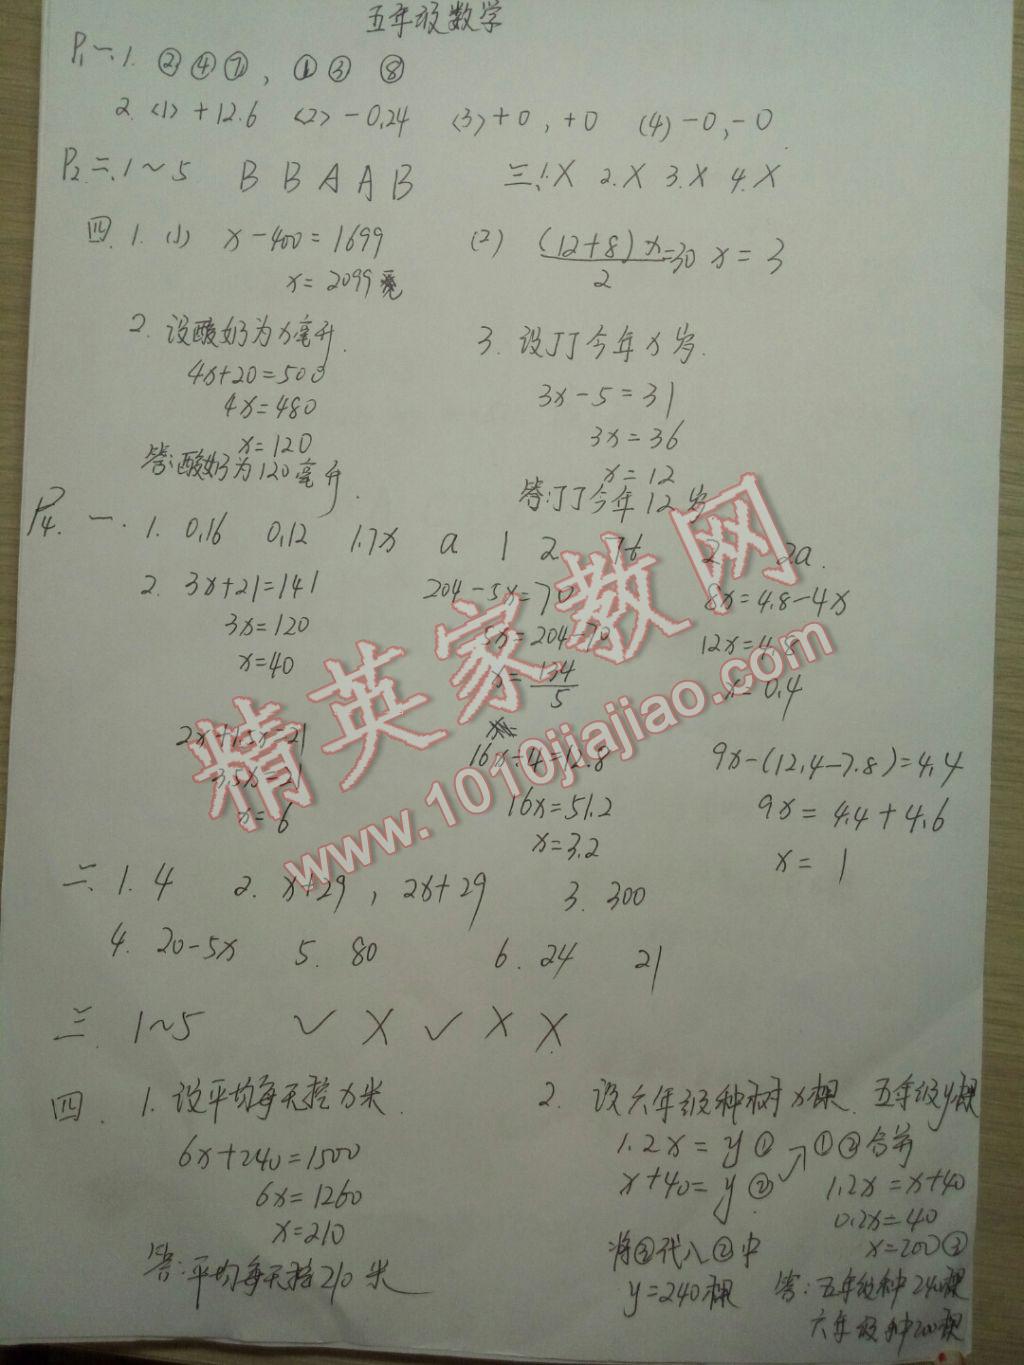 五年级数学
P1 一、1. ②④⑦, ①③ ⑧
2. <1> +12.6 <2> -0.24 <3> +0, +0 (4) -0, -0
P2 二、1~5 B B A A B 三、1.X 2.X 3.X 4.X
四 1. (1) x-400=1699 (2) (12+8)x/2=30 x=3
x=2099
2. 设酸奶为x毫升. 3. 设丁丁今年x岁.
4x+20=500 3x-5=31
4x=480 3x=36
x=120 x=12
答:酸奶为120毫升. 答:丁丁今年12岁
P4. 一. 1. 0.16 0.12 1.7x a 1 2 2a.
2. 3x+21=141 204-5x=70 8x=4.8-4x
3x=120 5x=204-70 12x=4.8
x=40 x=134/5 x=0.4
2x+1.5x=21 16x÷4=12.8 9x-(12.4-7.8)=4.4
3.5x=21 16x=51.2 9x=4.4+4.6
x=6 x=3.2 x=1
精英家教网
www.1010jiajiao.com
二、1. 4 2. x+29, 2x+29 3. 300
4. 20-5x 5. 80 6. 24 21
三 1~5 ✓ X ✓ X X
四. 1. 设平均每天挖x米. 2. 设六年级种树x棵. 五年级y棵
6x+240=1500 1.2x=y① ①②合并
6x=1260 x+40=y② 1.2x=x+40
x=210 0.2x=40
答:平均每天挖210米 将③代入②中 x=200③
y=240棵 答:五年级种240棵
六年级种200棵